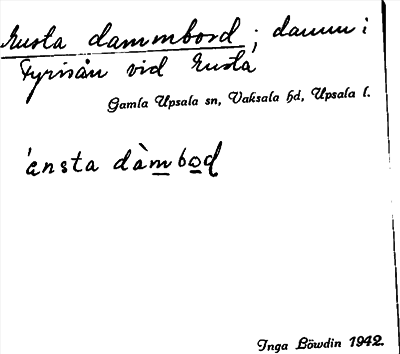 Ensta dammbord; damm i
Fyrisån vid Ensta
Gamla Upsala sn, Vaksala hd, Upsala l.
ensta dàmboḍ
Inga Löwdin 1942.